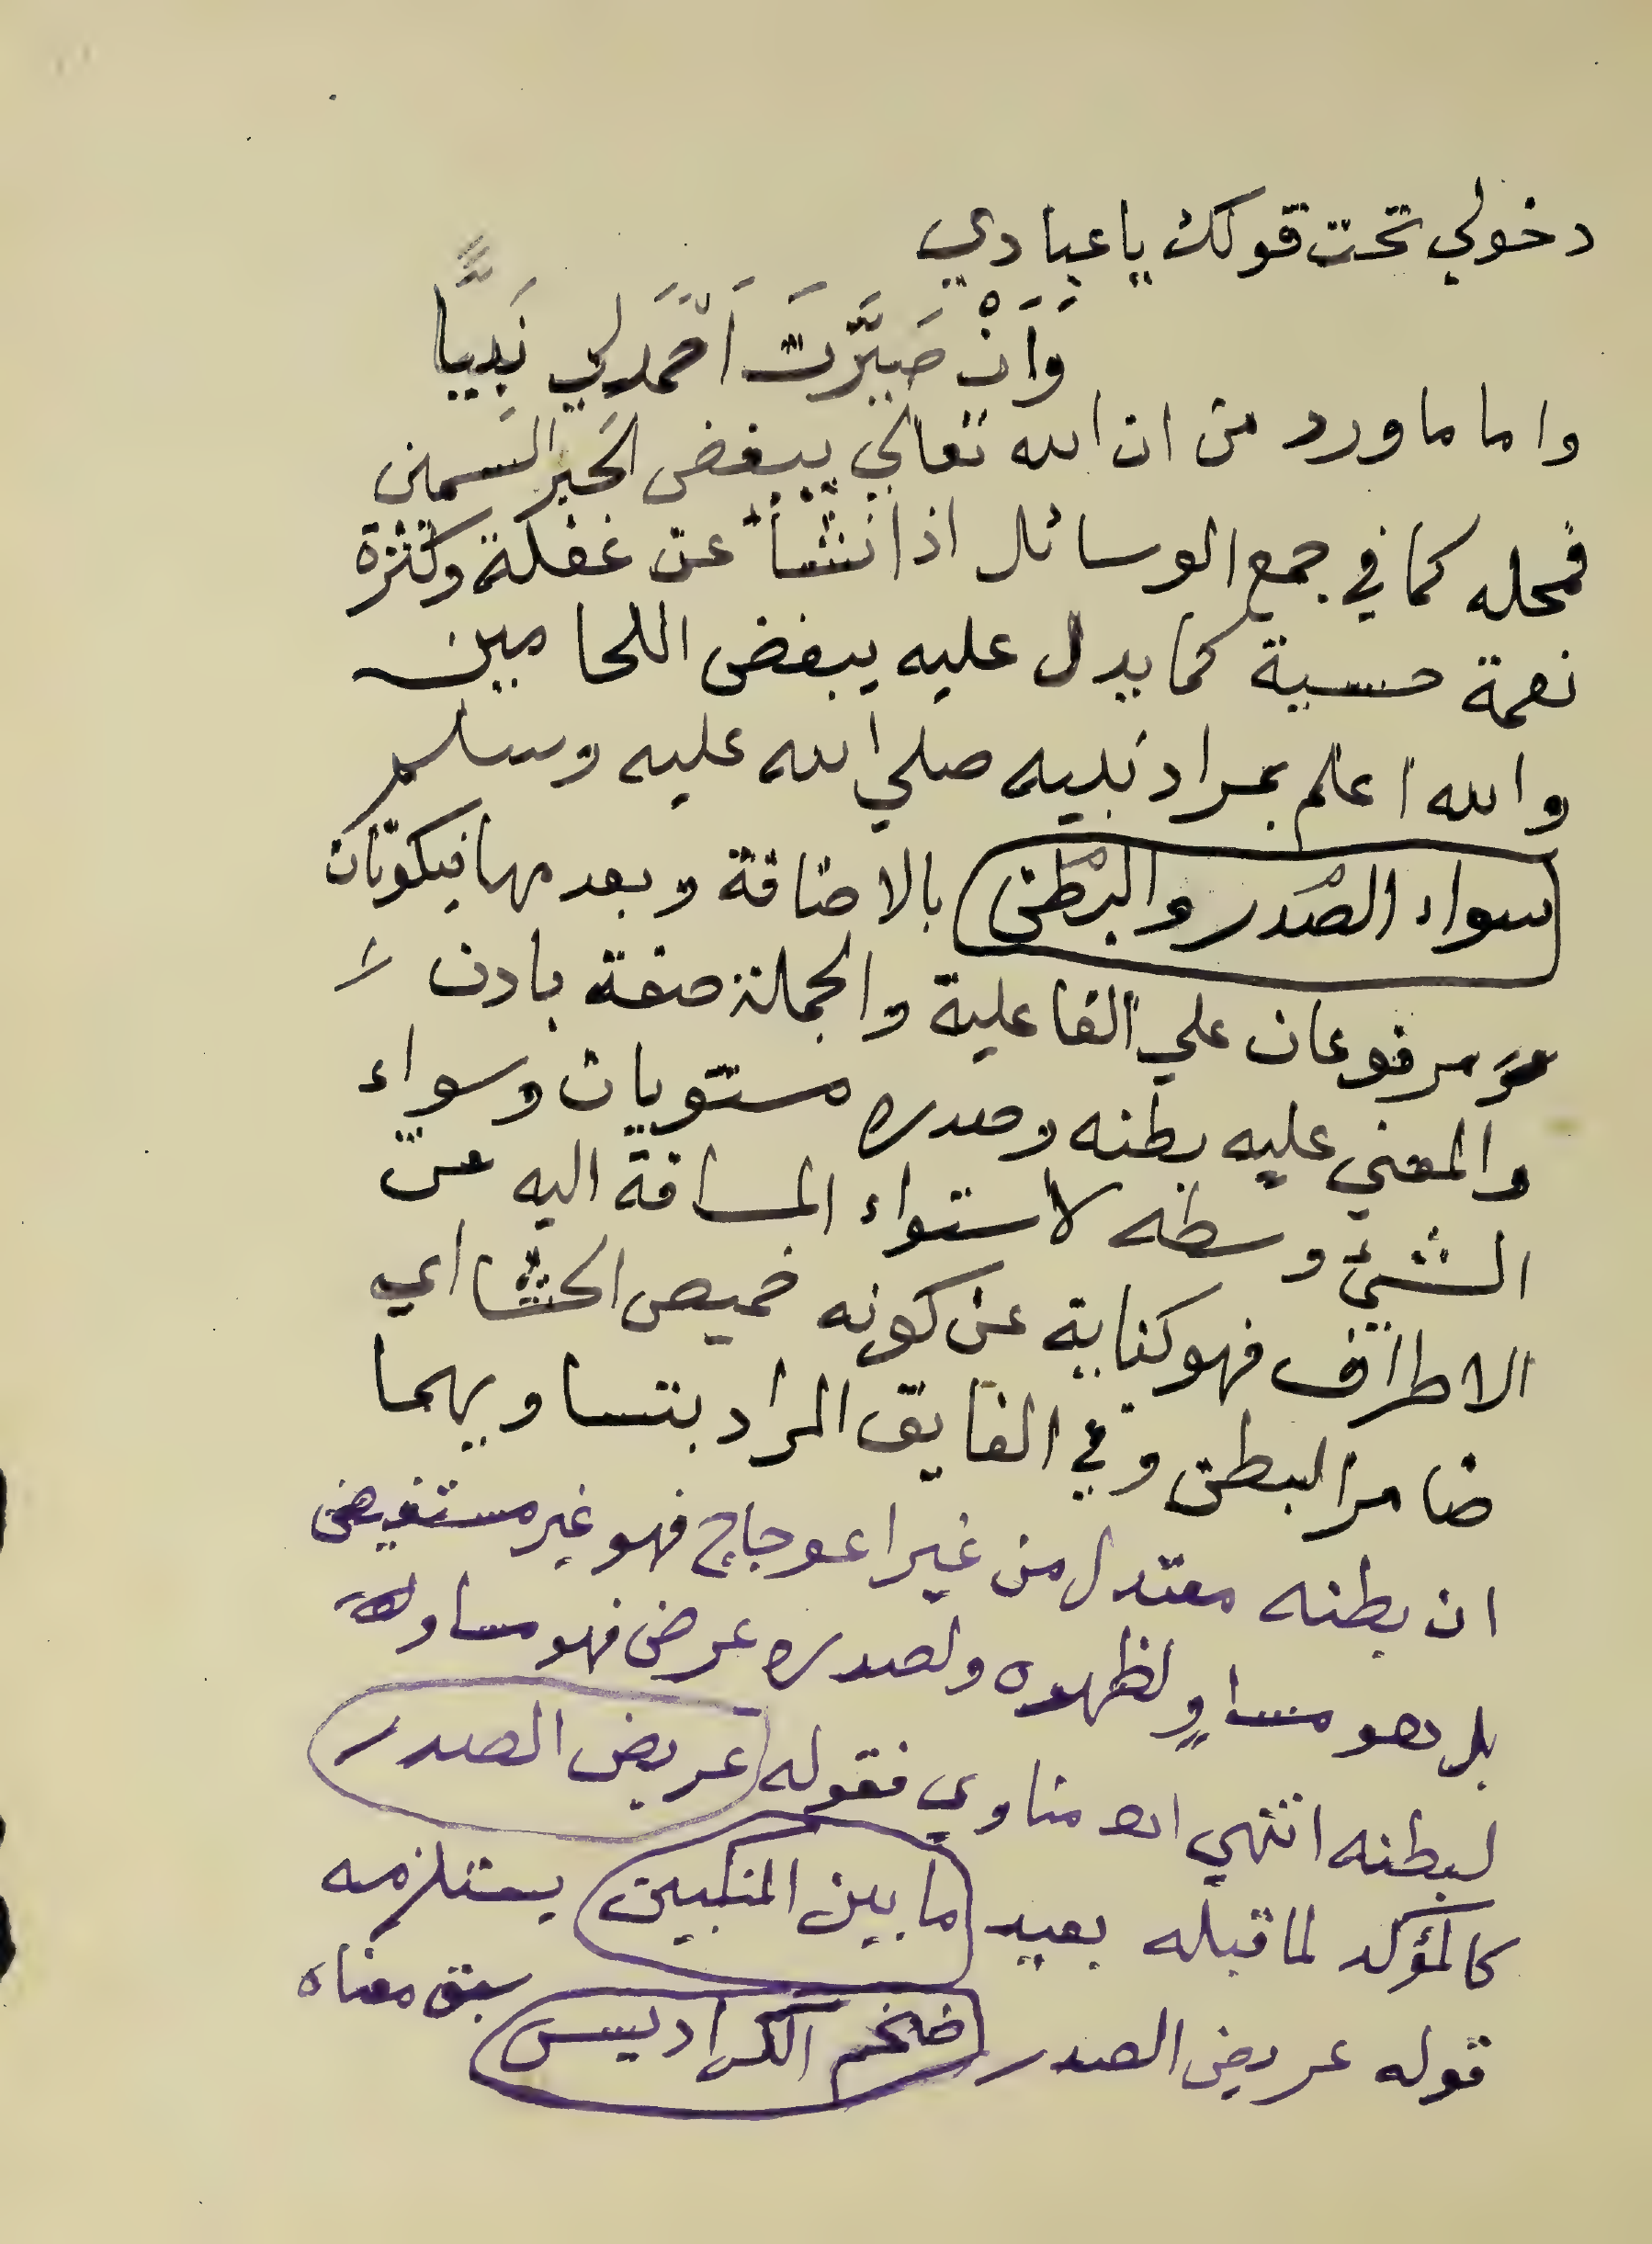 دخولي تحت قولك يا عبادي
وَاَنْ صَيَّرْتَ اَحْمَدَ لي نَبِيًّا
واما ما ورد من ان الله تعالي يبغض الحَبر السَمين
فمحله كما في جمع الوسائل اذا نشأ عن غفلة وكثرة
نعمة حسية كما يدل عليه يبغض اللحامين
والله اعلم بمراد نبيه صلي الله عليه وسلم
سواء الصْدر والبطْن بالاضافة وبعدمها فيكونان
مرفوعان علي الفاعلية والجملة صفة بادن
والمعني عليه بطنه وصدره مستويان وسواء
الشيئ وسطه لاستواء المسافة اليه من
الاطراف فهو كناية عن كونه خميص الحشا اي
ضامر البطن وفي الفايق المراد بتساويهما
ان بطنه معتدل من غير اعوجاج فهو غير مستفيض
بل هو مساوٍ لظهره ولصدره عرض فهو مساو
لبطنه انتهي اهـ مناوي فقوله عريض الصدر
كالمؤكد لما قبله بعيد ما بين المنكبين يستلزمه
قوله عريض الصدر ضخم الكراديس سبق معناه